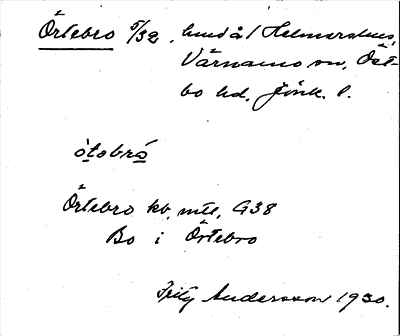 Örtebro 5/32, lund å l Helmershus,
Värnamo sn, Öst-
bo hd, Jönk. l.
òtəbró
Örtebro kb, mtl, G38
Bo i Örtebro
Fritz Andersson 1930.